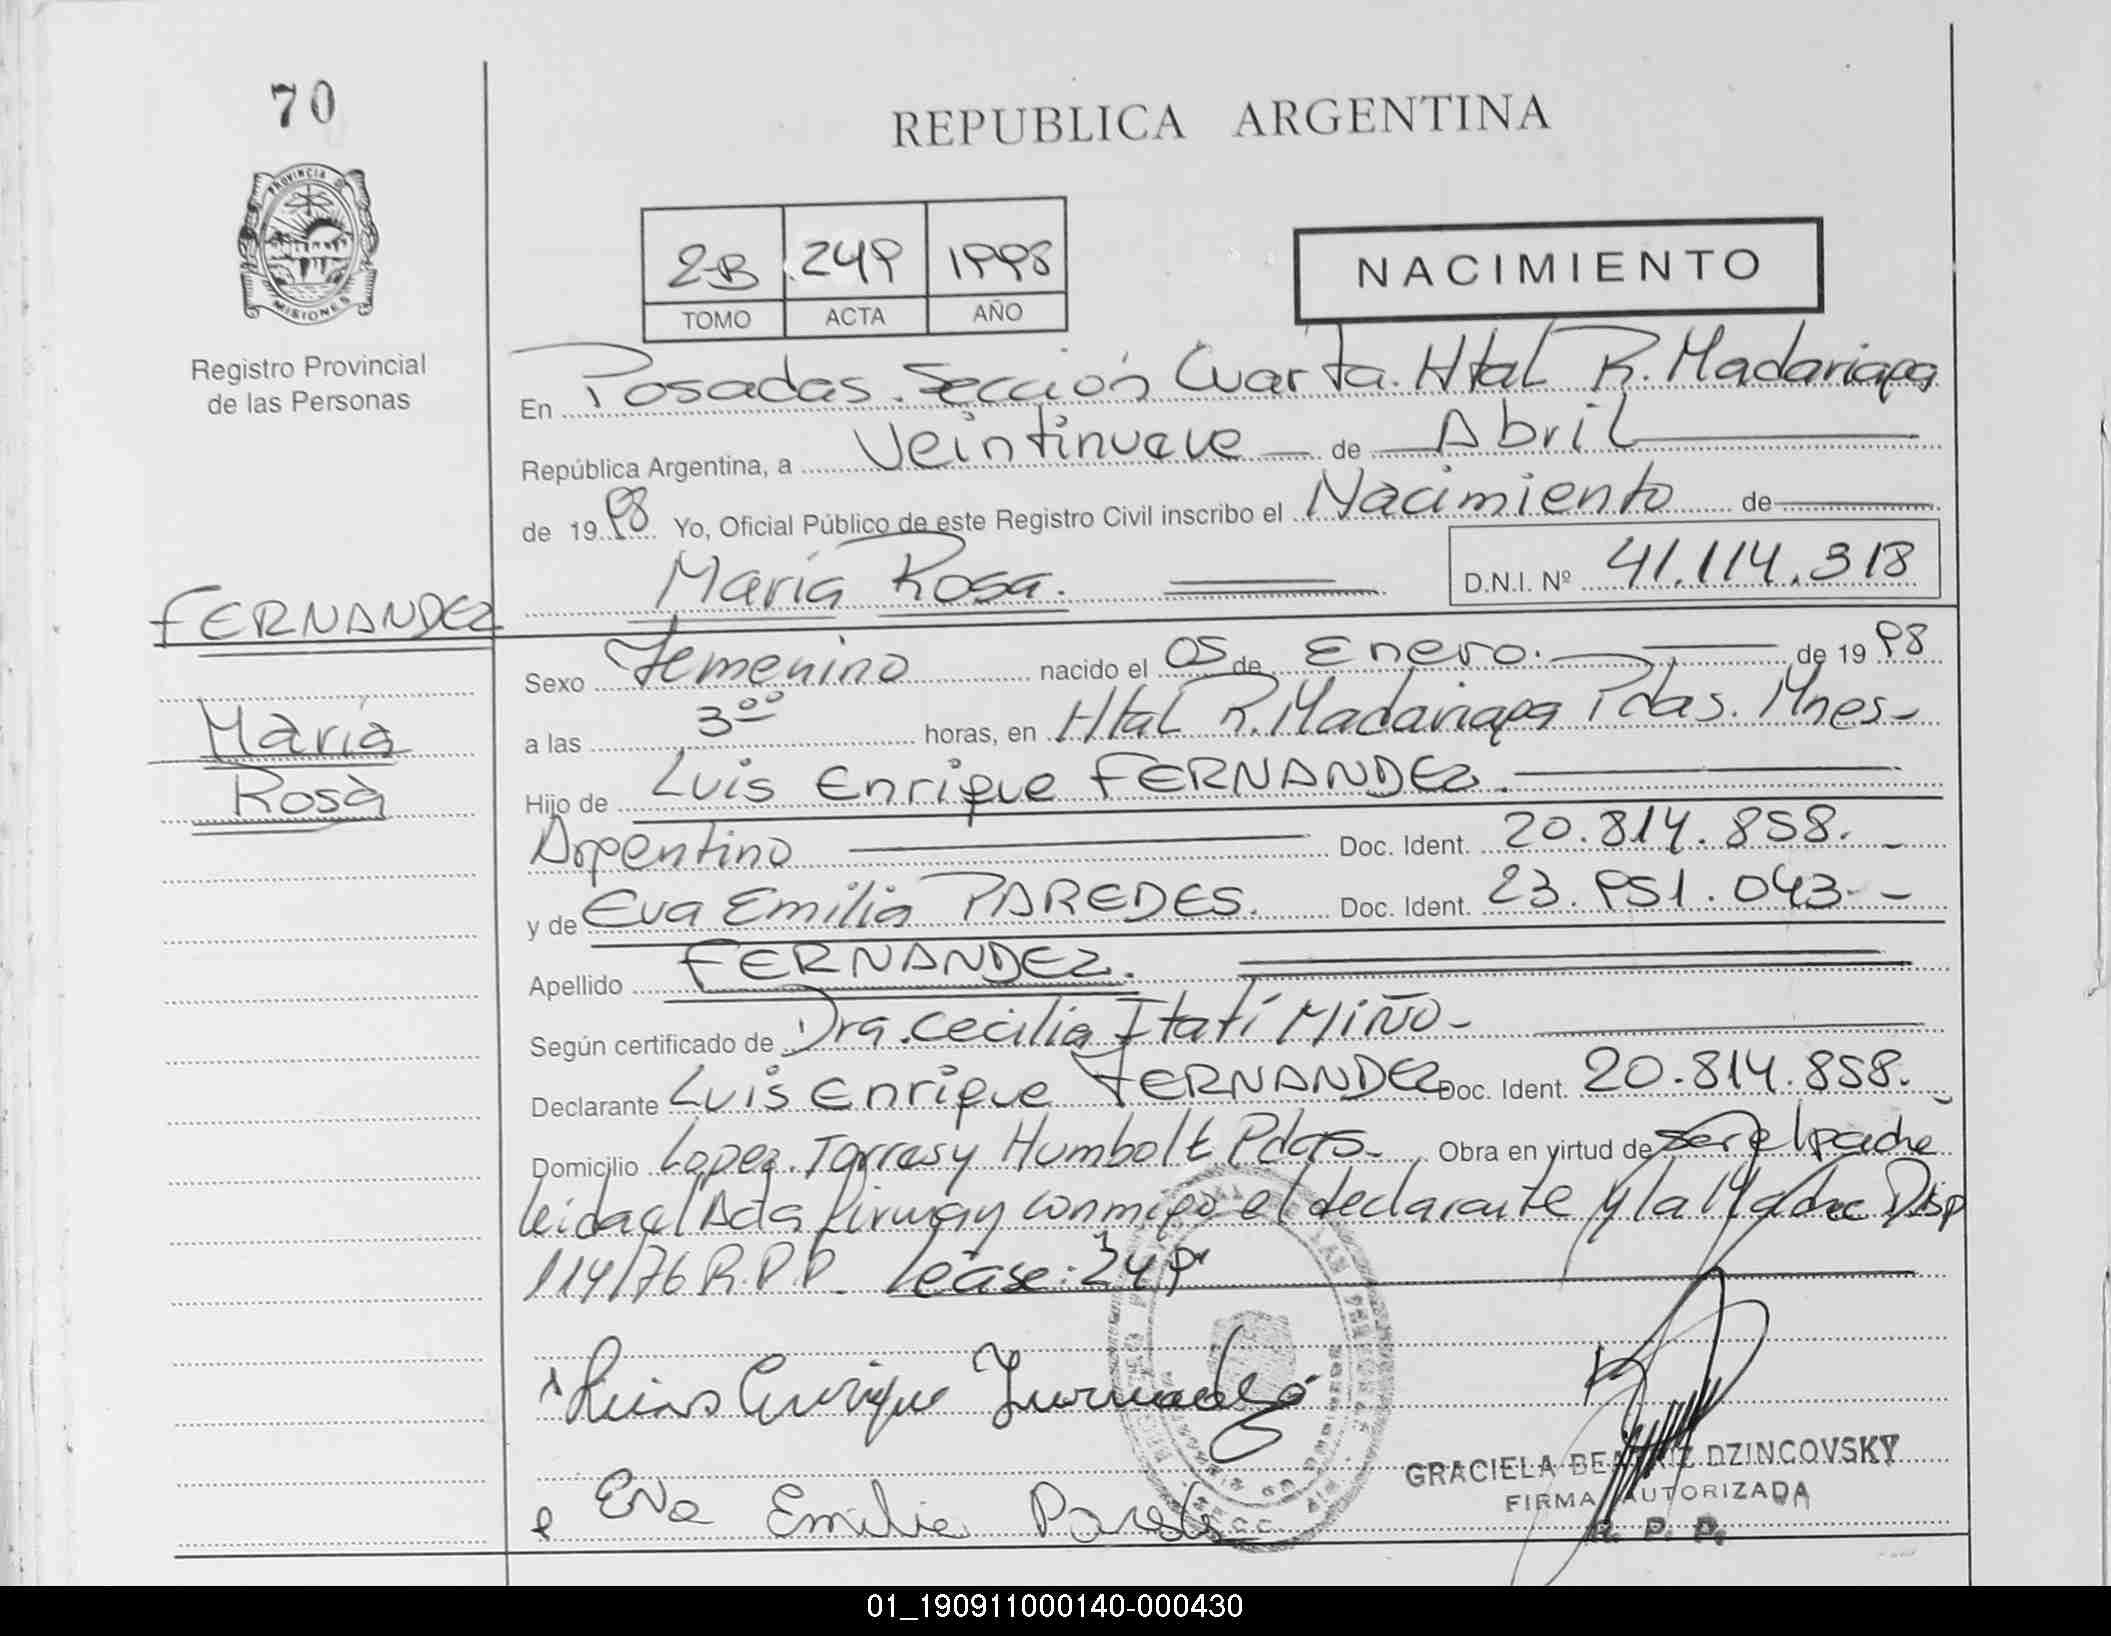 70
REPUBLICA ARGENTINA
PROVINCIA DE
MISIONES
Registro Provincial
de las Personas
2-B 249 1998
TOMO ACTA AÑO
NACIMIENTO
En Posadas. Sección Cuarta. Htal R. Madariaga
República Argentina, a Veintinueve de Abril
de 1998 Yo, Oficial Público de este Registro Civil inscribo el Nacimiento de
María Rosa. D.N.I. Nº 41.114.318
FERNANDEZ
María
Rosa
Sexo Femenino nacido el 05 de Enero. de 1998
a las 3⁰⁰ horas, en Htal R. Madariaga Pdas. Mnes-
Hijo de Luis Enrique FERNANDEZ.
Argentino Doc. Ident. 20.814.858.
y de Eva Emilia PAREDES. Doc. Ident. 23.951.043-
Apellido FERNANDEZ.
Según certificado de Dra. Cecilia Itatí MIÑO-
Declarante Luis Enrique FERNANDEZ Doc. Ident. 20.814.858.
Domicilio Lopez. Torres y Humbolt Pdas- Obra en virtud de ser el padre
leida el Acta firman conmigo el declarante y la Madre Disp
114/76 R.P.P. Lease: 249
Luis Enrique Fernandez
Eva Emilia Paredes
GRACIELA BEATRIZ DZINCOVSKY
FIRMA AUTORIZADA
R. P. P.
01_190911000140-000430